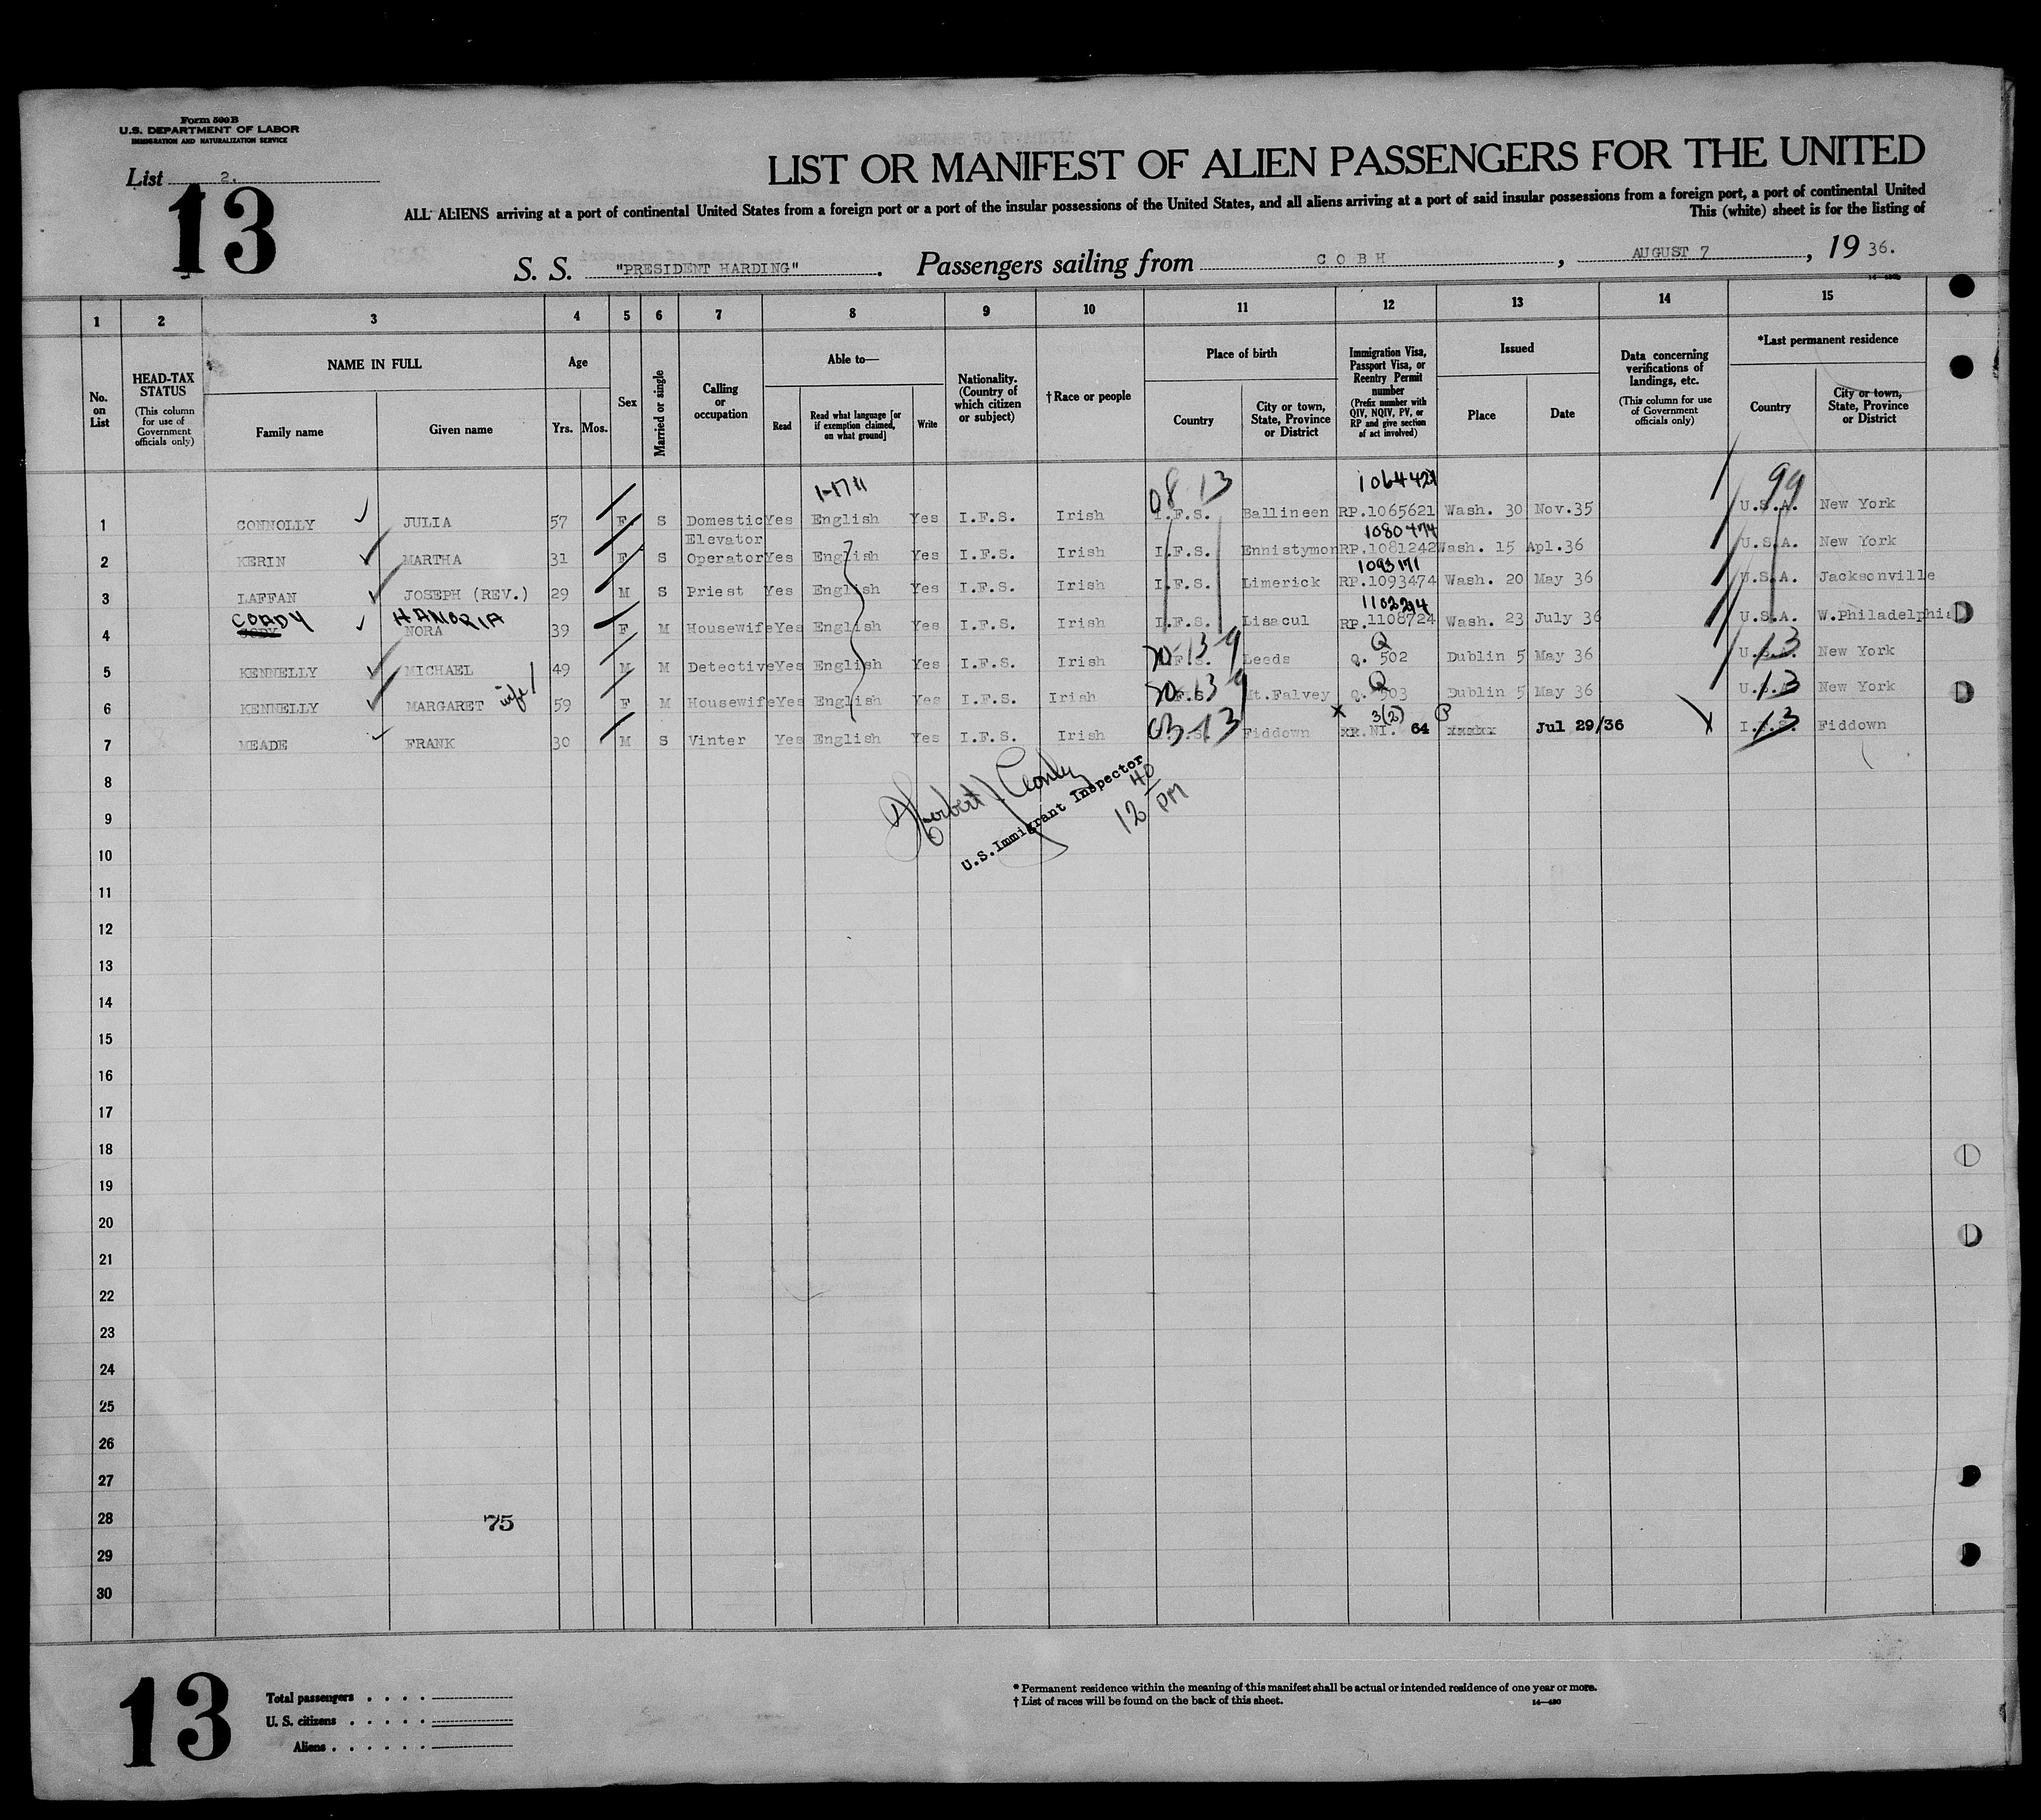 Form 500 B
U.S. DEPARTMENT OF LABOR
IMMIGRATION AND NATURALIZATION SERVICE
List 2.
13
LIST OR MANIFEST OF ALIEN PASSENGERS FOR THE UNITED
ALL ALIENS arriving at a port of continental United States from a foreign port or a port of the insular possessions of the United States, and all aliens arriving at a port of said insular possessions from a foreign port, a port of continental United
This (white) sheet is for the listing of
S. S. "PRESIDENT HARDING". Passengers sailing from COBH, AUGUST 7, 1936.
1 2 3 4 5 6 7 8 9 10 11 12 13 14 15
No. on List
HEAD-TAX STATUS (This column for use of Government officials only)
NAME IN FULL Family name Given name
Age Yrs. Mos.
Sex
Married or single
Calling or occupation
Able to— Read Read what language [or if exemption claimed, on what ground] Write
Nationality. (Country of which citizen or subject)
†Race or people
Place of birth Country City or town, State, Province or District
Immigration Visa, Passport Visa, or Reentry Permit number (Prefix number with QIV, NQIV, PV, or RP and give section of act involved)
Issued Place Date
Data concerning verifications of landings, etc. (This column for use of Government officials only)
*Last permanent residence Country City or town, State, Province or District
08 13 1064421 99
1 CONNOLLY JULIA 57 F S Domestic Yes English Yes I.F.S. Irish I.F.S. Ballineen RP.1065621 Wash. 30 Nov.35 U.S.A. New York
1080474
2 KERIN MARTHA 31 F S Elevator Operator Yes English Yes I.F.S. Irish I.F.S. Ennistymon RP.1081242 Wash. 15 Apl.36 U.S.A. New York
1093171
3 LAFFAN JOSEPH (REV.) 29 M S Priest Yes English Yes I.F.S. Irish I.F.S. Limerick RP.1093474 Wash. 20 May 36 U.S.A. Jacksonville
COADY HANORIA 1102294
4 NORA 39 F M Housewife Yes English Yes I.F.S. Irish I.F.S. Lisacul RP.1108724 Wash. 23 July 36 U.S.A. W.Philadelphia
20-13-9 Q 13
5 KENNELLY MICHAEL 49 M M Detective Yes English Yes I.F.S. Irish Leeds Q. 502 Dublin 5 May 36 U.S.A. New York
20 13 9 Q 13
6 KENNELLY MARGARET wife 59 F M Housewife Yes English Yes I.F.S. Irish Mt.Falvey Q. 503 Dublin 5 May 36 U.S.A. New York
03-13 x 3(2) P 13
7 MEADE FRANK 30 M S Vinter Yes English Yes I.F.S. Irish Fiddown NI. 64 xxxxx Jul 29/36 I.F.S. Fiddown
8
U.S. Immigrant Inspector
12 40 PM
9
10
11
12
13
14
15
16
17
18
19
20
21
22
23
24
25
26
27
28 75
29
30
13
Total passengers
U. S. citizens
Aliens
* Permanent residence within the meaning of this manifest shall be actual or intended residence of one year or more.
† List of races will be found on the back of this sheet.